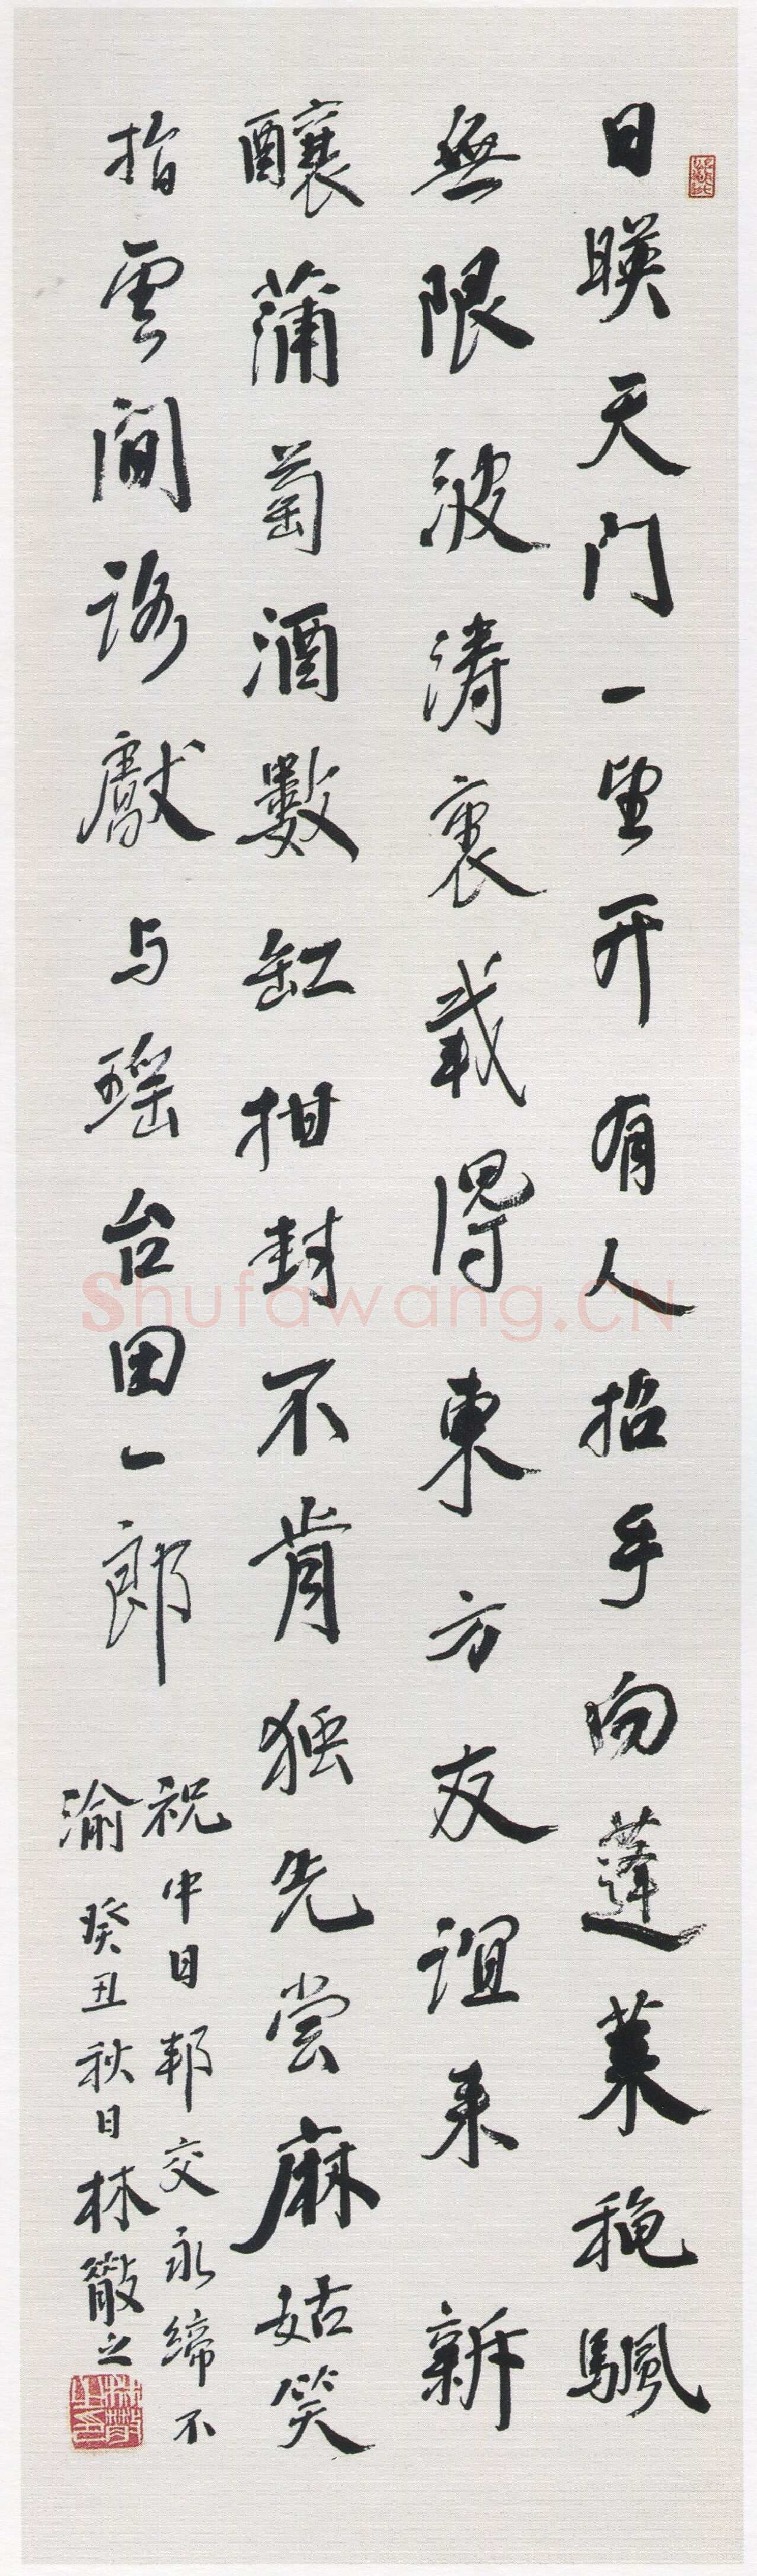 日暎天门一望开有人招手向蓬莱穏颿
無限波涛裏载得東方友谊来新
釀蒲萄酒數缸拑封不肯独先尝麻姑笑
指雲间路獻与瑶台田一郎
祝中日邦交永缔不
渝 癸丑秋日林散之
Shufawang.CN